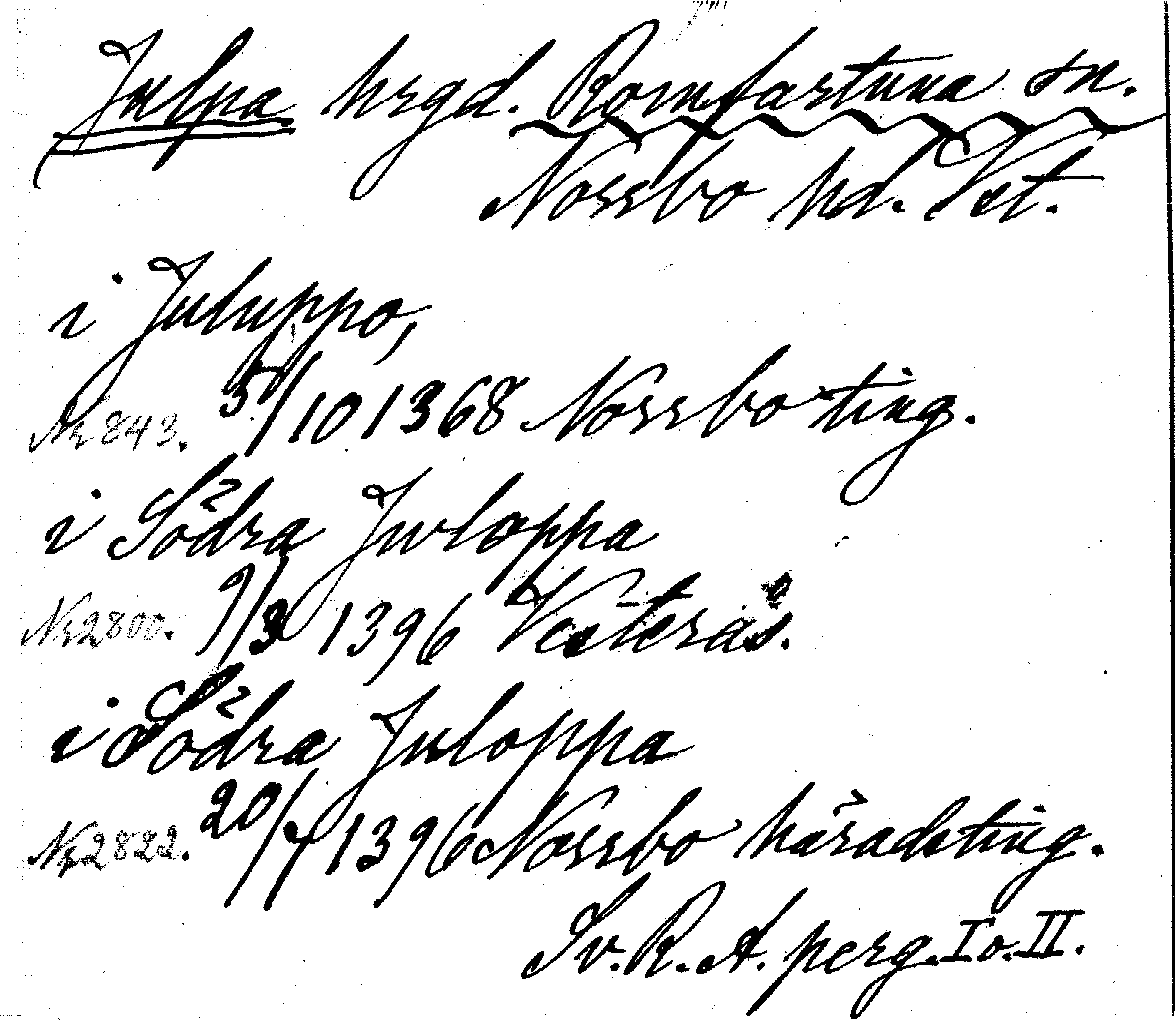 Julpa hrgd. Romfartuna sn.
Norrbo hd. Vst.
i Juluppo,
Nr 843. 5/10 1368 Norrbo ting.
i Södra Juloppa
Nr 2800. 9/3 1396 Vesterås.
i Södra Juloppa
Nr 2822. 20/7 1396 Norrbo häradsting.
Sv. R. A. perg. I o. II.